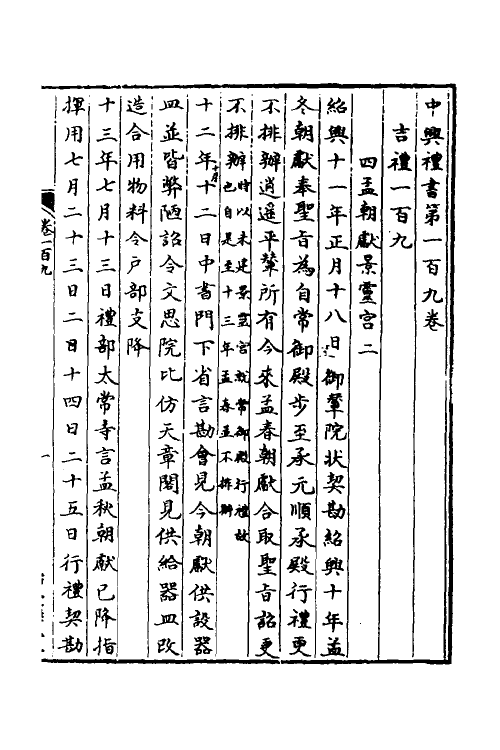 中興禮書第一百九卷
吉禮一百九
四孟朝獻景靈宮二
紹興十一年正月十八日御輦院狀契勘紹興十年孟
冬朝獻奉聖旨為自常御殿步至承元順承殿行禮更
不排辦逍遥平輦所有今來孟春朝獻合取聖旨詔更
不排辦時以未建景靈宮就常御殿行禮故
也自是至十三年孟春並不排辦
十二年十二日中書門下省言勘會見今朝獻供設器
皿並皆弊陋詔令文思院比仿天章閣見供給器皿改
造合用物料令戸部支降
十三年七月十三日禮部太常寺言孟秋朝獻已降指
揮用七月二十三日二日十四日二十五日行禮契勘
卷一百九
一